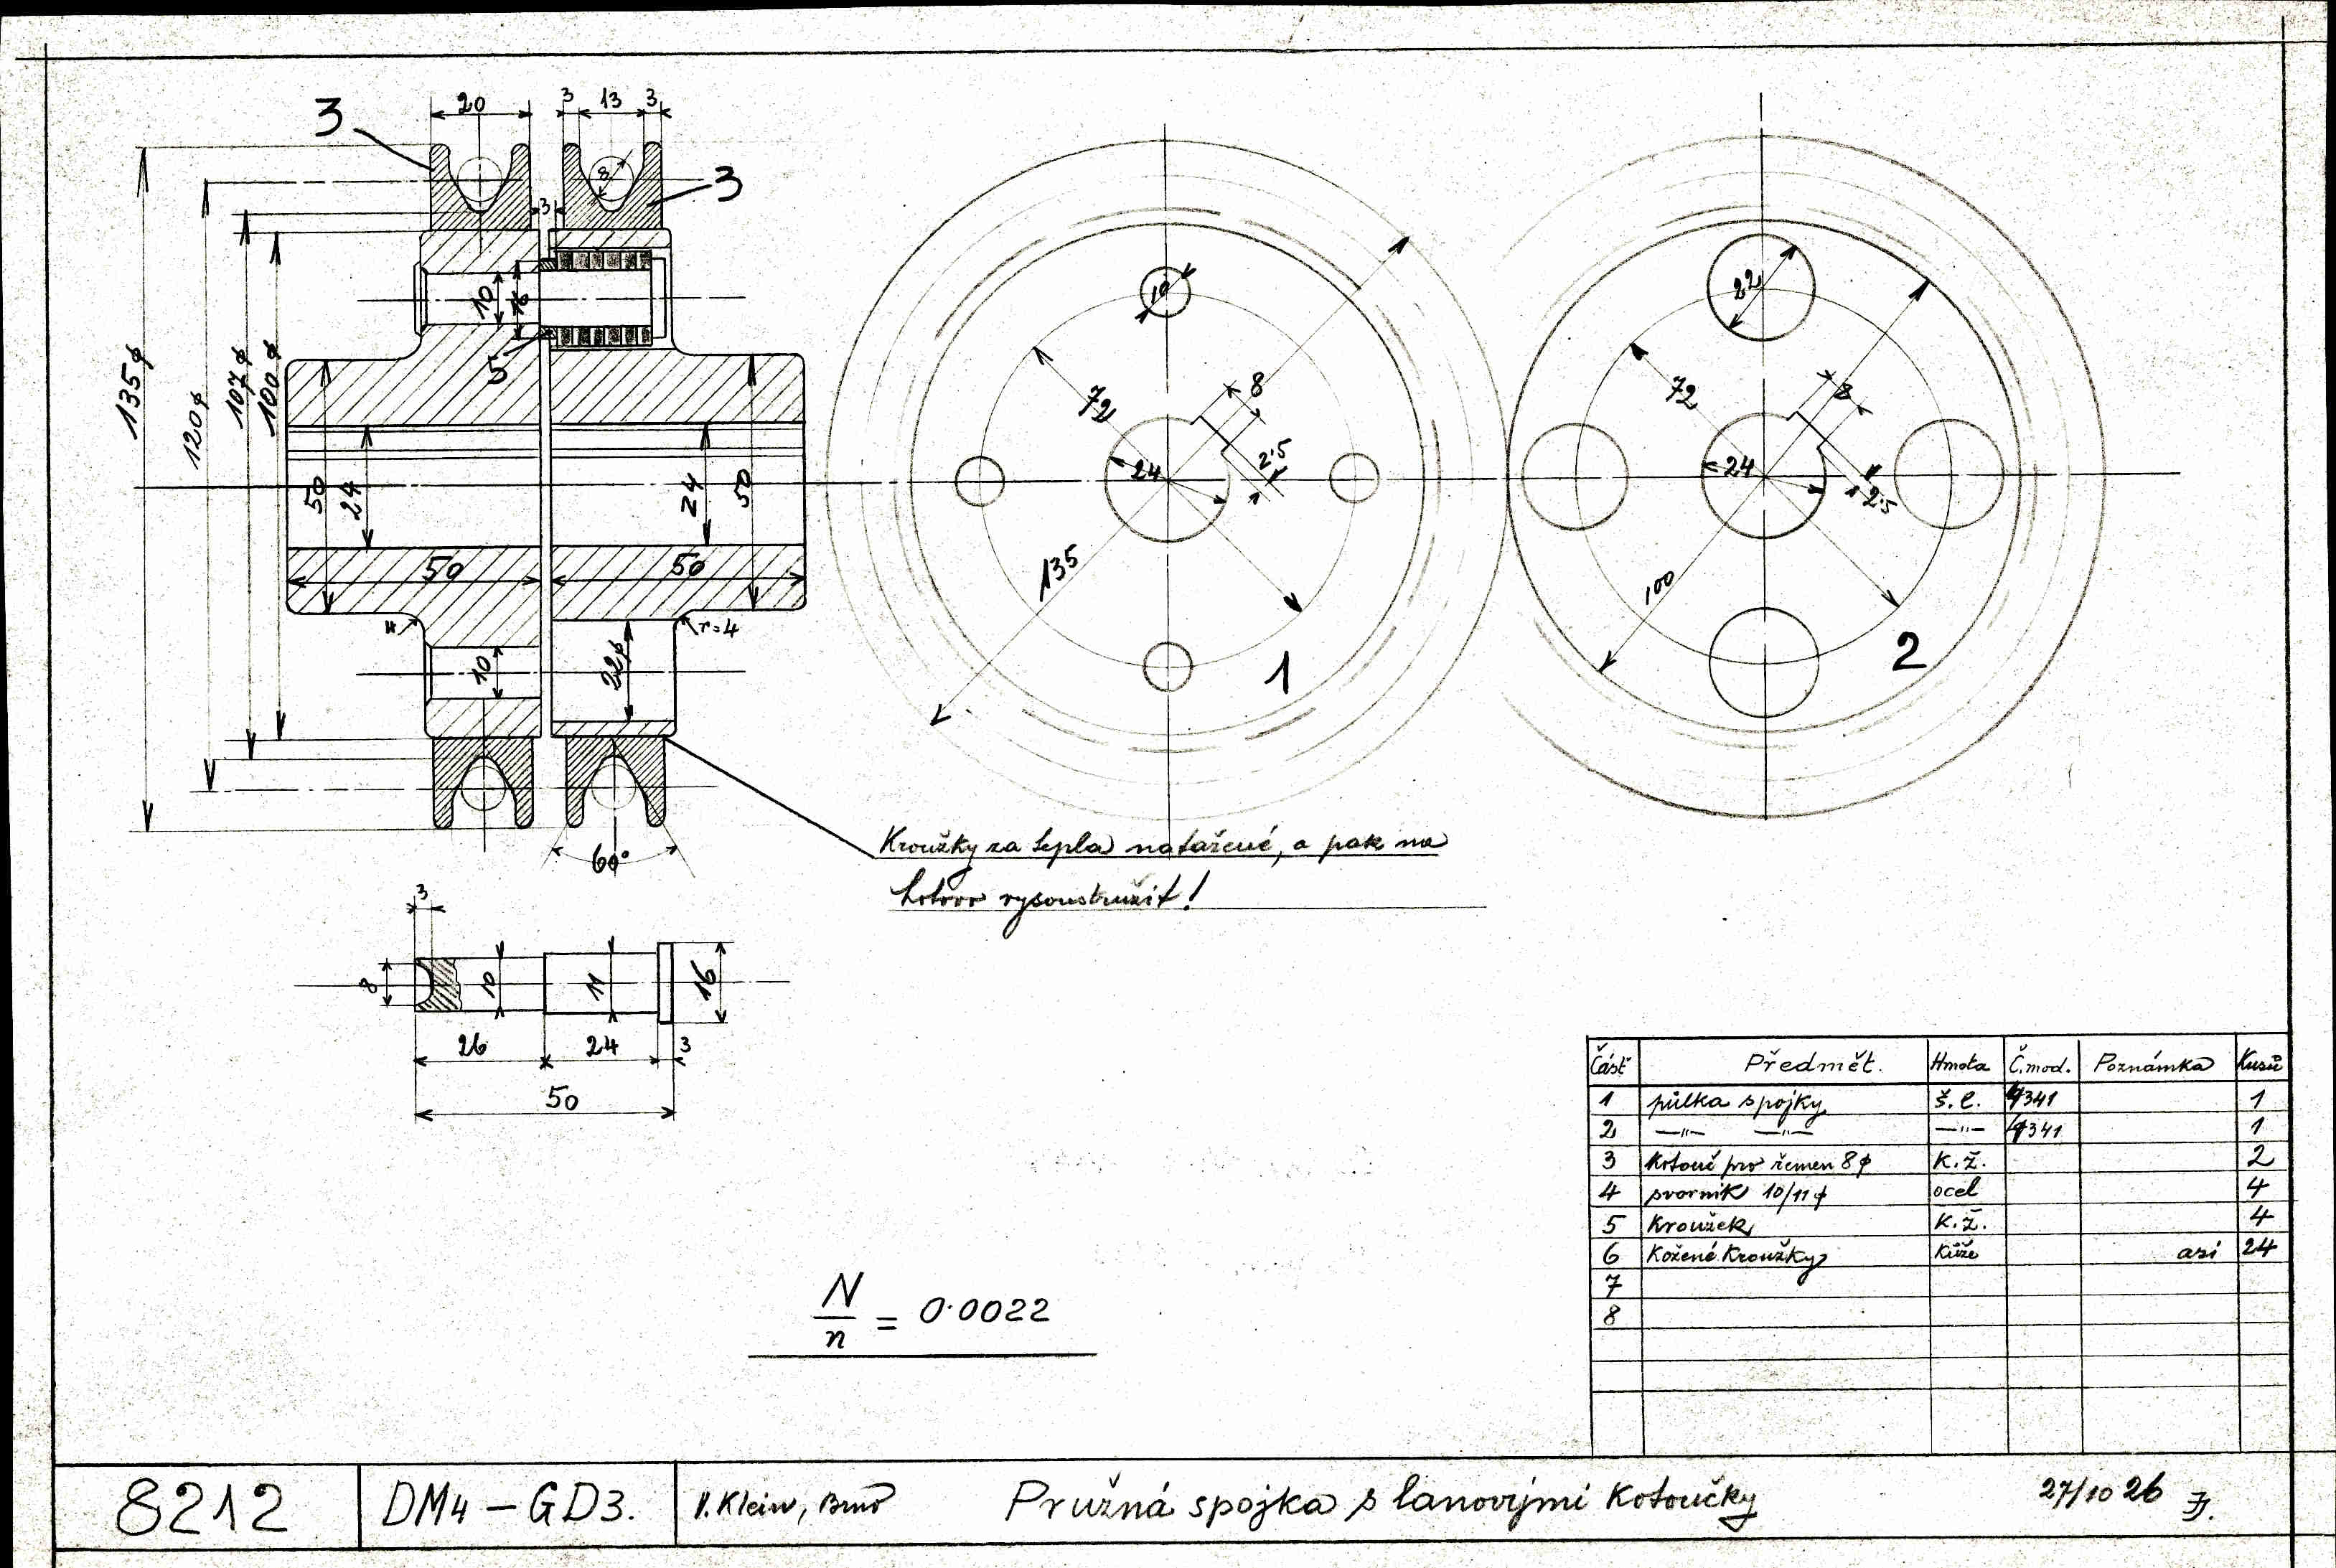 3
20
3 13 3
8
3
3
135ϕ
120ϕ
107ϕ
100ϕ
10
16
5
50
24
24
50
50
50
r=4
10
22ϕ
60°
10
72
8
2·5
24
135
1
22
72
8
24
2·5
100
2
Kroužky za tepla natažené, a pak na
hotovo vysoustružit!
3
8
10
11
16
26
24
3
50
N/n = 0·0022
Část Předmět. Hmota Č.mod. Poznámka Kusů
1 půlka spojky š.l. 4341 1
2 —"— —"— —"— 4341 1
3 Kotouč pro řemen 8ϕ K.ž. 2
4 svorník 10/11ϕ ocel 4
5 Kroužek K.ž. 4
6 Kožené Kroužky Kůže asi 24
7
8
8212
DM4-GD3.
Klein, Brno
Pružná spojka s lanovými Kotoučky
27/10 26